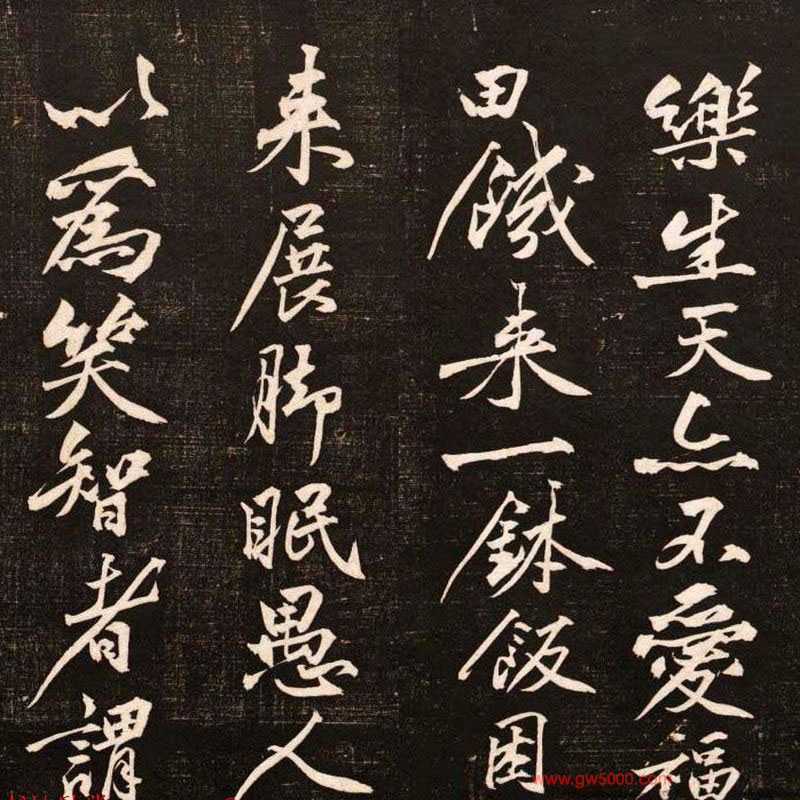 樂生天亦不愛福
田饑来一鉢飯困
来展脚眠愚人
以爲笑智者謂
www.gw5000.com